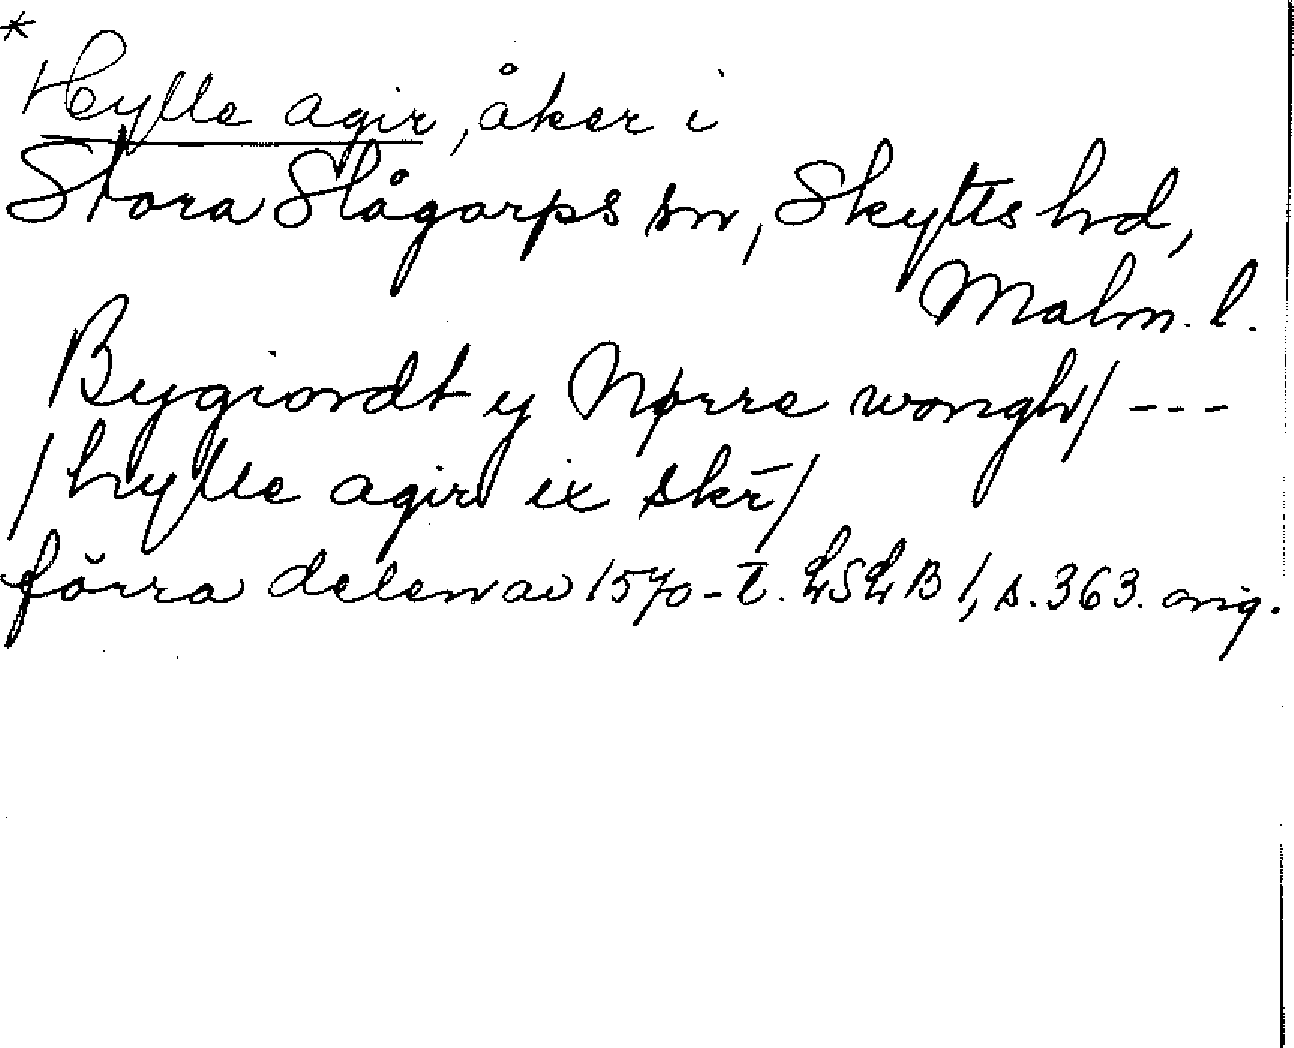 *
Hylle agir, åker i
Stora Slågarps sn, Skytts hd,
Malm. l.
Bygiordt y Nørre wongh/ ---
/hylle agir ix skr̄/
förra delen av 1570-t. LSLB 1, s. 363. orig.